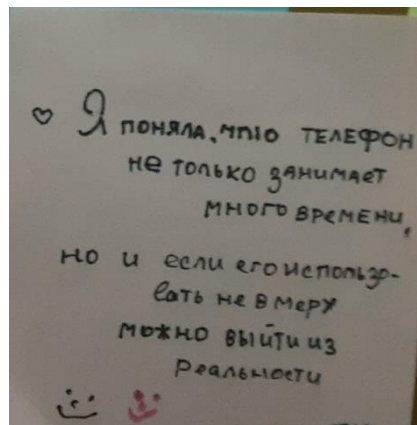 ♡ Я поняла, что ТЕЛЕФОН
не только занимает
много времени,
но и если его использо-
вать не в меру
можно выйти из
реальности